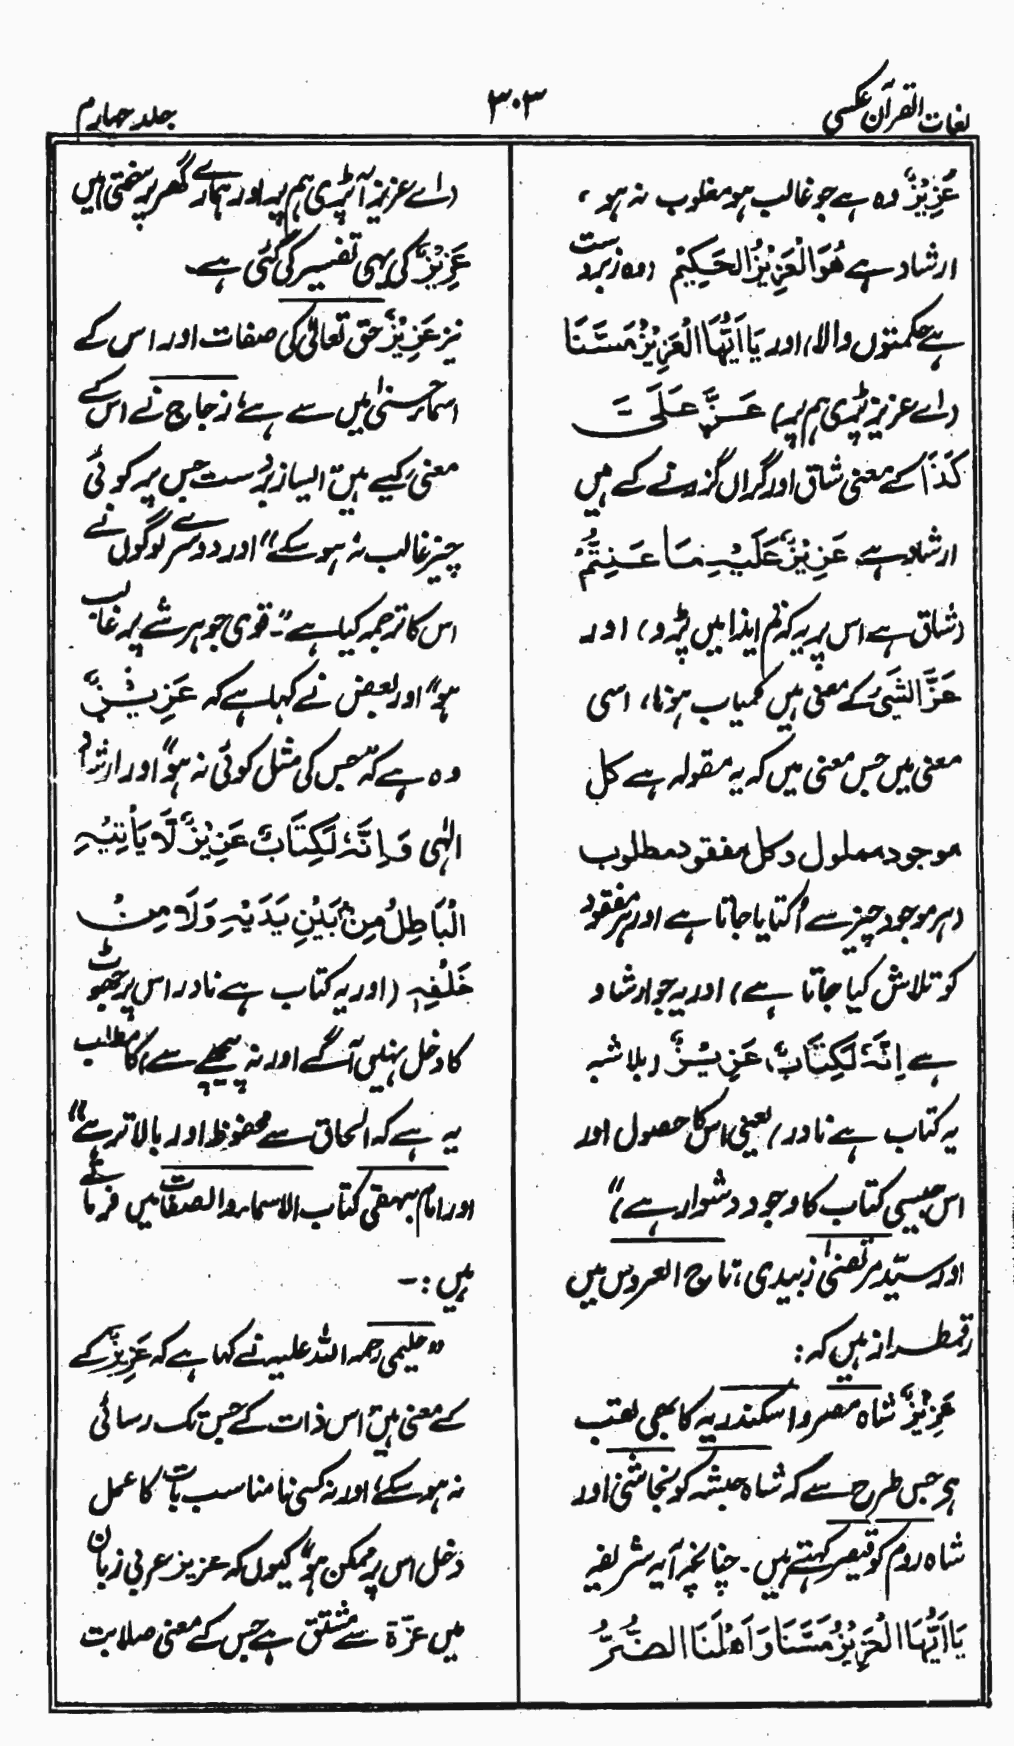 لغات القرآن عکسی
۳۰۳
جلد چہارم
عَزِیْزٌ وہ ہے جو غالب ہو مغلوب نہ ہو،
ارشاد ہے هُوَالْعَزِيْزُ الْحَكِيْمُ (وہ زبردست
ہے حکمتوں والا) اور يَا اَيُّهَا الْعَزِيْزُ مَسَّنَا
(اے عزیز پڑی ہم پر) عَزَّ عَلَیَّ
كَذَا کے معنی شاق اور گراں گزرنے کے ہیں
ارشاد ہے عَزِيْزٌ عَلَيْهِ مَا عَنِتُّمْ
(شاق ہے اس پر یہ کہ تم ایذا میں پڑو) اور
عَزَّ الشَّيْءُ کے معنی ہیں کمیاب ہونا، اسی
معنی میں جس معنی میں کہ یہ مقولہ ہے کل
موجود مملول وکل مفقود مطلوب
(ہر موجود چیز سے اُکتایا جاتا ہے اور ہر مفقود
کو تلاش کیا جاتا ہے) اور یہ جو ارشاد
ہے اِنَّهٗ لَكِتَابٌ عَزِيْزٌ (بلاشبہ
یہ کتاب ہے نادر) یعنی اس کا حصول اور
اس جیسی کتاب کا وجود دشوار ہے)"
اور سیّد مرتضیٰ زبیدی، تاج العروس میں
رقمطراز ہیں کہ:
عَزِیْزٌ شاہ مصر و اسکندریہ کا بھی لقب
ہے جس طرح سے کہ شاہ حبشہ کو نجاشی اور
شاہ روم کو قیصر کہتے ہیں۔ چنانچہ آیہ شریفہ
يَا اَيُّهَا الْعَزِيْزُ مَسَّنَا وَ اَهْلَنَا الضُّرُّ
(اے عزیز آ پڑی ہم پر اور ہمارے گھر پر سختی) میں
عَزِیْزٌ کی یہی تفسیر کی گئی ہے۔
نیز عَزِیْزٌ حق تعالیٰ کی صفات اور اس کے
اسماء حسنیٰ میں سے ہے، زجاج نے اس کے
معنی کیے ہیں" ایسا زبردست جس پر کوئی
چیز غالب نہ ہو سکے" اور دوسرے لوگوں نے
اس کا ترجمہ کیا ہے"۔ قوی جو ہر شے پر غالب
ہو" اور بعض نے کہا ہے کہ عَزِیْزٌ
وہ ہے کہ" جس کی مثل کوئی نہ ہو" اور ارشاد
الٰہی وَ اِنَّهٗ لَكِتَابٌ عَزِيْزٌ لَا يَأْتِيْهِ
الْبَاطِلُ مِنْ بَيْنِ يَدَيْهِ وَلَا مِنْ
خَلْفِهٖ (اور یہ کتاب ہے نادر اس پر جھوٹ
کا دخل نہیں آگے اور نہ پیچھے سے) کا مطلب
یہ ہے کہ الحاق سے محفوظ اور بالاتر ہے"
اور امام بیہقی کتاب الاسماء والصفات میں فرماتے
ہیں:۔
"حلیمی رحمہ اللہ علیہ نے کہا ہے کہ عَزِیْزٌ کے
کے معنی ہیں" اس ذات کے جس تک رسائی
نہ ہو سکے، اور نہ کسی نامناسب بات کا عمل
دخل اس پر ممکن ہو" کیوں کہ عزیز عربی زبان
میں عزّۃ سے مشتق ہے جس کے معنی صلابت